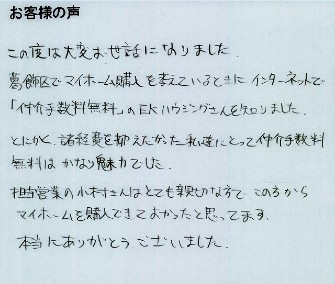 お客様の声
この度は大変お世話になりました.
葛飾区でマイホーム購入を考えているときに インターネットで
「仲介手数料無料」のEKハウジングさんを知りました.
とにかく、諸経費を抑えたかった私達にとって仲介手数料
無料は かなり魅力でした.
担当営業の小村さんはとても親切な方で このるから
マイホームを購入できてよかったと思ってます.
本当にありがとうございました.